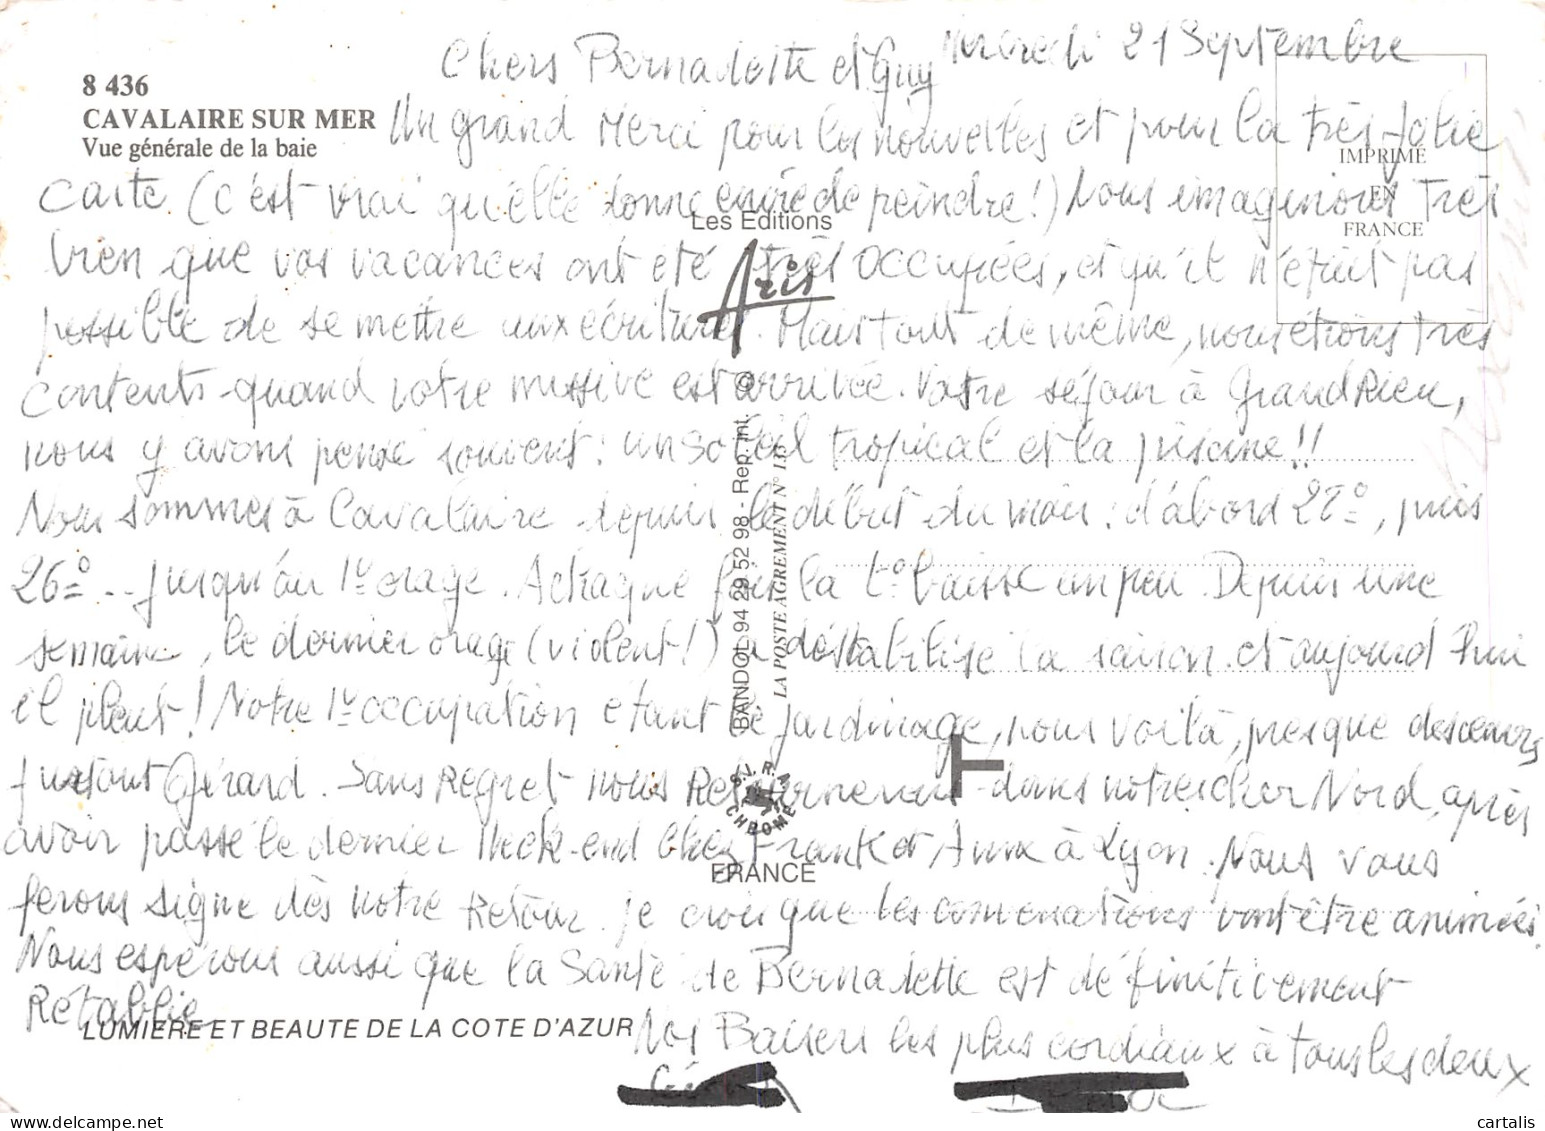 Mercredi 21 Septembre
Chers Bernadette et Guy
8 436
CAVALAIRE SUR MER
Vue générale de la baie
Un grand Merci pour les nouvelles et pour la très jolie
carte (c'est vrai qu'elle donne envie de peindre!) Nous imaginions Très
bien que vos vacances ont été très occupées, et qu'il n'était pas
possible de se mettre aux écritures. Mais tout de même, nous étions très
contents quand votre missive est arrivée. Votre séjour à Grand Rieu,
nous y avons pensé souvent: un soleil tropical et la piscine!!
Nous sommes à Cavalaire depuis le début du mois: d'abord 28°, puis
26° -- jusqu'au 1er orage. A chaque fois la t° baisse un peu. Depuis une
semaine, le dernier orage (violent!) a déstabilisé la saison et aujourd'hui
il pleut! Notre 1ère occupation étant le jardinage, nous voilà, presque desoeuvrés
surtout Gérard. Sans Regret nous Retournerons dans notre cher Nord, après
avoir passé le dernier Week-end chez Franck et Anne à Lyon. Nous vous
ferons signe dès notre Retour. Je crois que les conversations vont être animées.
Nous espérons aussi que la Santé de Bernadette est définitivement
Rétablie
Nos Baisers les plus cordiaux à tous les deux
IMPRIMÉ
EN
FRANCE
Les Editions
Aris
BANDOL 94 29 52 98 - Rep. int. ©
LA POSTE AGREMENT N° 117
S.I.R.A.
CHROME
FRANCE
LUMIERE ET BEAUTE DE LA COTE D'AZUR
cartalis